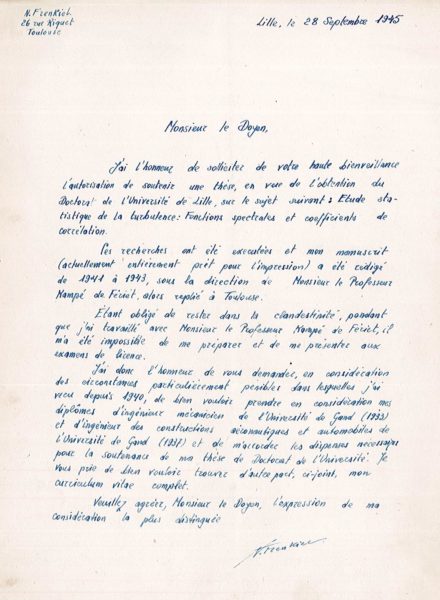 N. Frenkiel
26 rue Riquet
Toulouse
Lille, le 28 Septembre 1945
Monsieur le Doyen,
J'ai l'honneur de solliciter de votre haute bienveillance
l'autorisation de soutenir une thèse, en vue de l'obtention du
Doctorat de l'Université de Lille, sur le sujet suivant : Etude sta-
tistique de la turbulence: Fonctions spectrales et coefficients de
corrélation.
Ces recherches ont été executées et mon manuscrit
(actuellement entièrement prêt pour l'impression) a été rédigé
de 1941 à 1943, sous la direction de Monsieur le Professeur
Kampé de Fériet, alors replié à Toulouse.
Etant obligé de rester dans la clandestinité, pendant
que j'ai travaillé avec Monsieur le Professeur Kampé de Fériet, il
m'a été impossible de me préparer et de me présenter aux
examens de licence.
J'ai donc l'honneur de vous demander, en considération
des circonstances particulièrement penibles dans lesquelles j'ai
vecu depuis 1940, de bien vouloir prendre en considération mes
diplômes d'ingénieur mécanicien de l'Université de Gand (1933)
et d'ingénieur des constructions aéronautiques et automobiles de
l'Université de Gand (1937) et de m'accorder les dispenses necessaires
pour la soutenance de ma thèse de Doctorat de l'Université. Je
vous prie de bien vouloir trouver d'autre part, ci-joint, mon
curriculum vitae complet.
Veuillez agréer, Monsieur le Doyen, l'expression de ma
considération la plus distinguée
N. Frenkiel